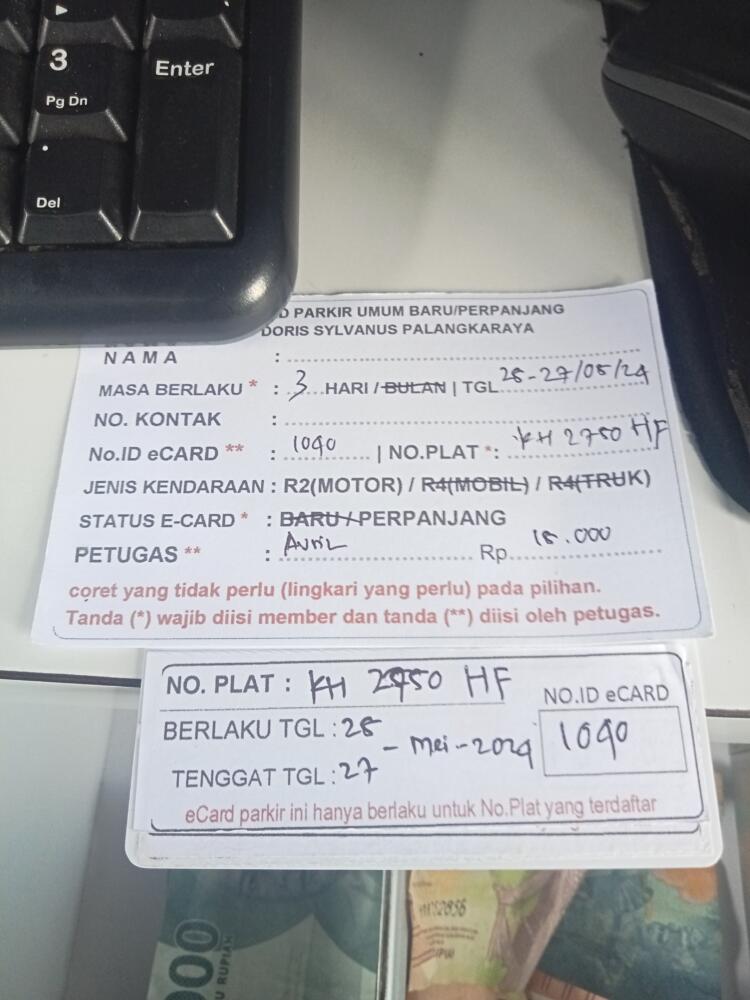 3
Pg Dn
Enter
.
Del
D PARKIR UMUM BARU/PERPANJANG
DORIS SYLVANUS PALANGKARAYA
NAMA :
MASA BERLAKU * : 3 HARI / BULAN | TGL 25-27/05/24
NO. KONTAK :
No.ID eCARD ** : 1090 | NO.PLAT *: KH 2750 HF
JENIS KENDARAAN : R2(MOTOR) / R4(MOBIL) / R4(TRUK)
STATUS E-CARD * : BARU / PERPANJANG
PETUGAS ** : Avril Rp 15.000
coret yang tidak perlu (lingkari yang perlu) pada pilihan.
Tanda (*) wajib diisi member dan tanda (**) diisi oleh petugas.
NO. PLAT : KH 2750 HF
NO.ID eCARD
BERLAKU TGL : 25
- Mei - 2024
1090
TENGGAT TGL : 27
eCard parkir ini hanya berlaku untuk No.Plat yang terdaftar